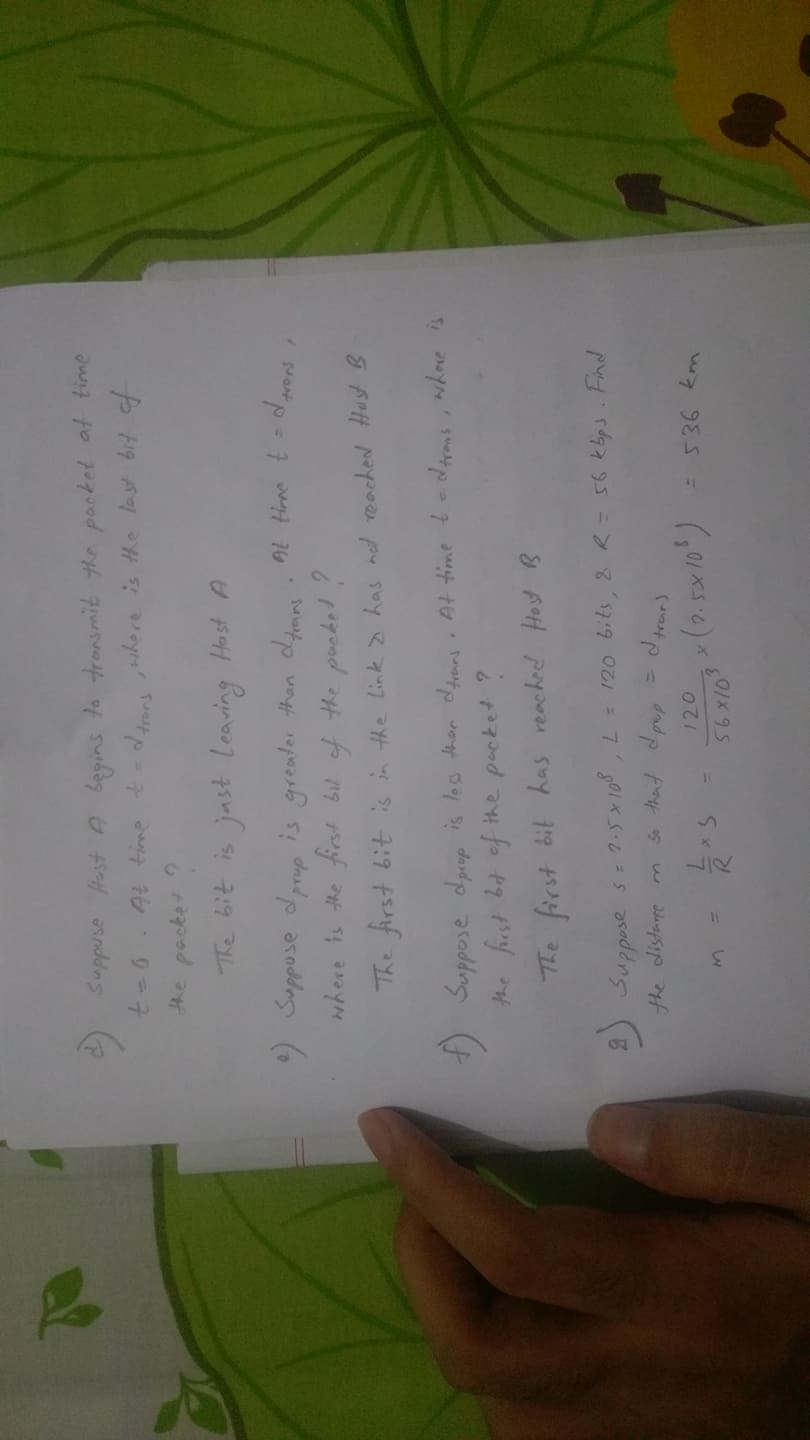 d) Suppuse Host A begins to transmit the packet at time
t = 0 . At time t = d trans , where is the last bit of
the packet ?
The bit is just Leaving Host A
e) Suppose d prop is greater than d trans . At time t = d trans ,
where is the first bit of the packet ?
The first bit is in the link & has not reached Host B
f) Suppose d prop is less than d trans . At time t = d trans , where is
the first bit of the packet ?
The first bit has reached Host B
g) Suppose s = 2.5 x 10⁸ , L = 120 bits, & R = 56 kbps . Find
the distance m so that d prop = d trans
m = L/R x S = 120/56 x 10³ x (2.5 x 10⁸) = 536 km